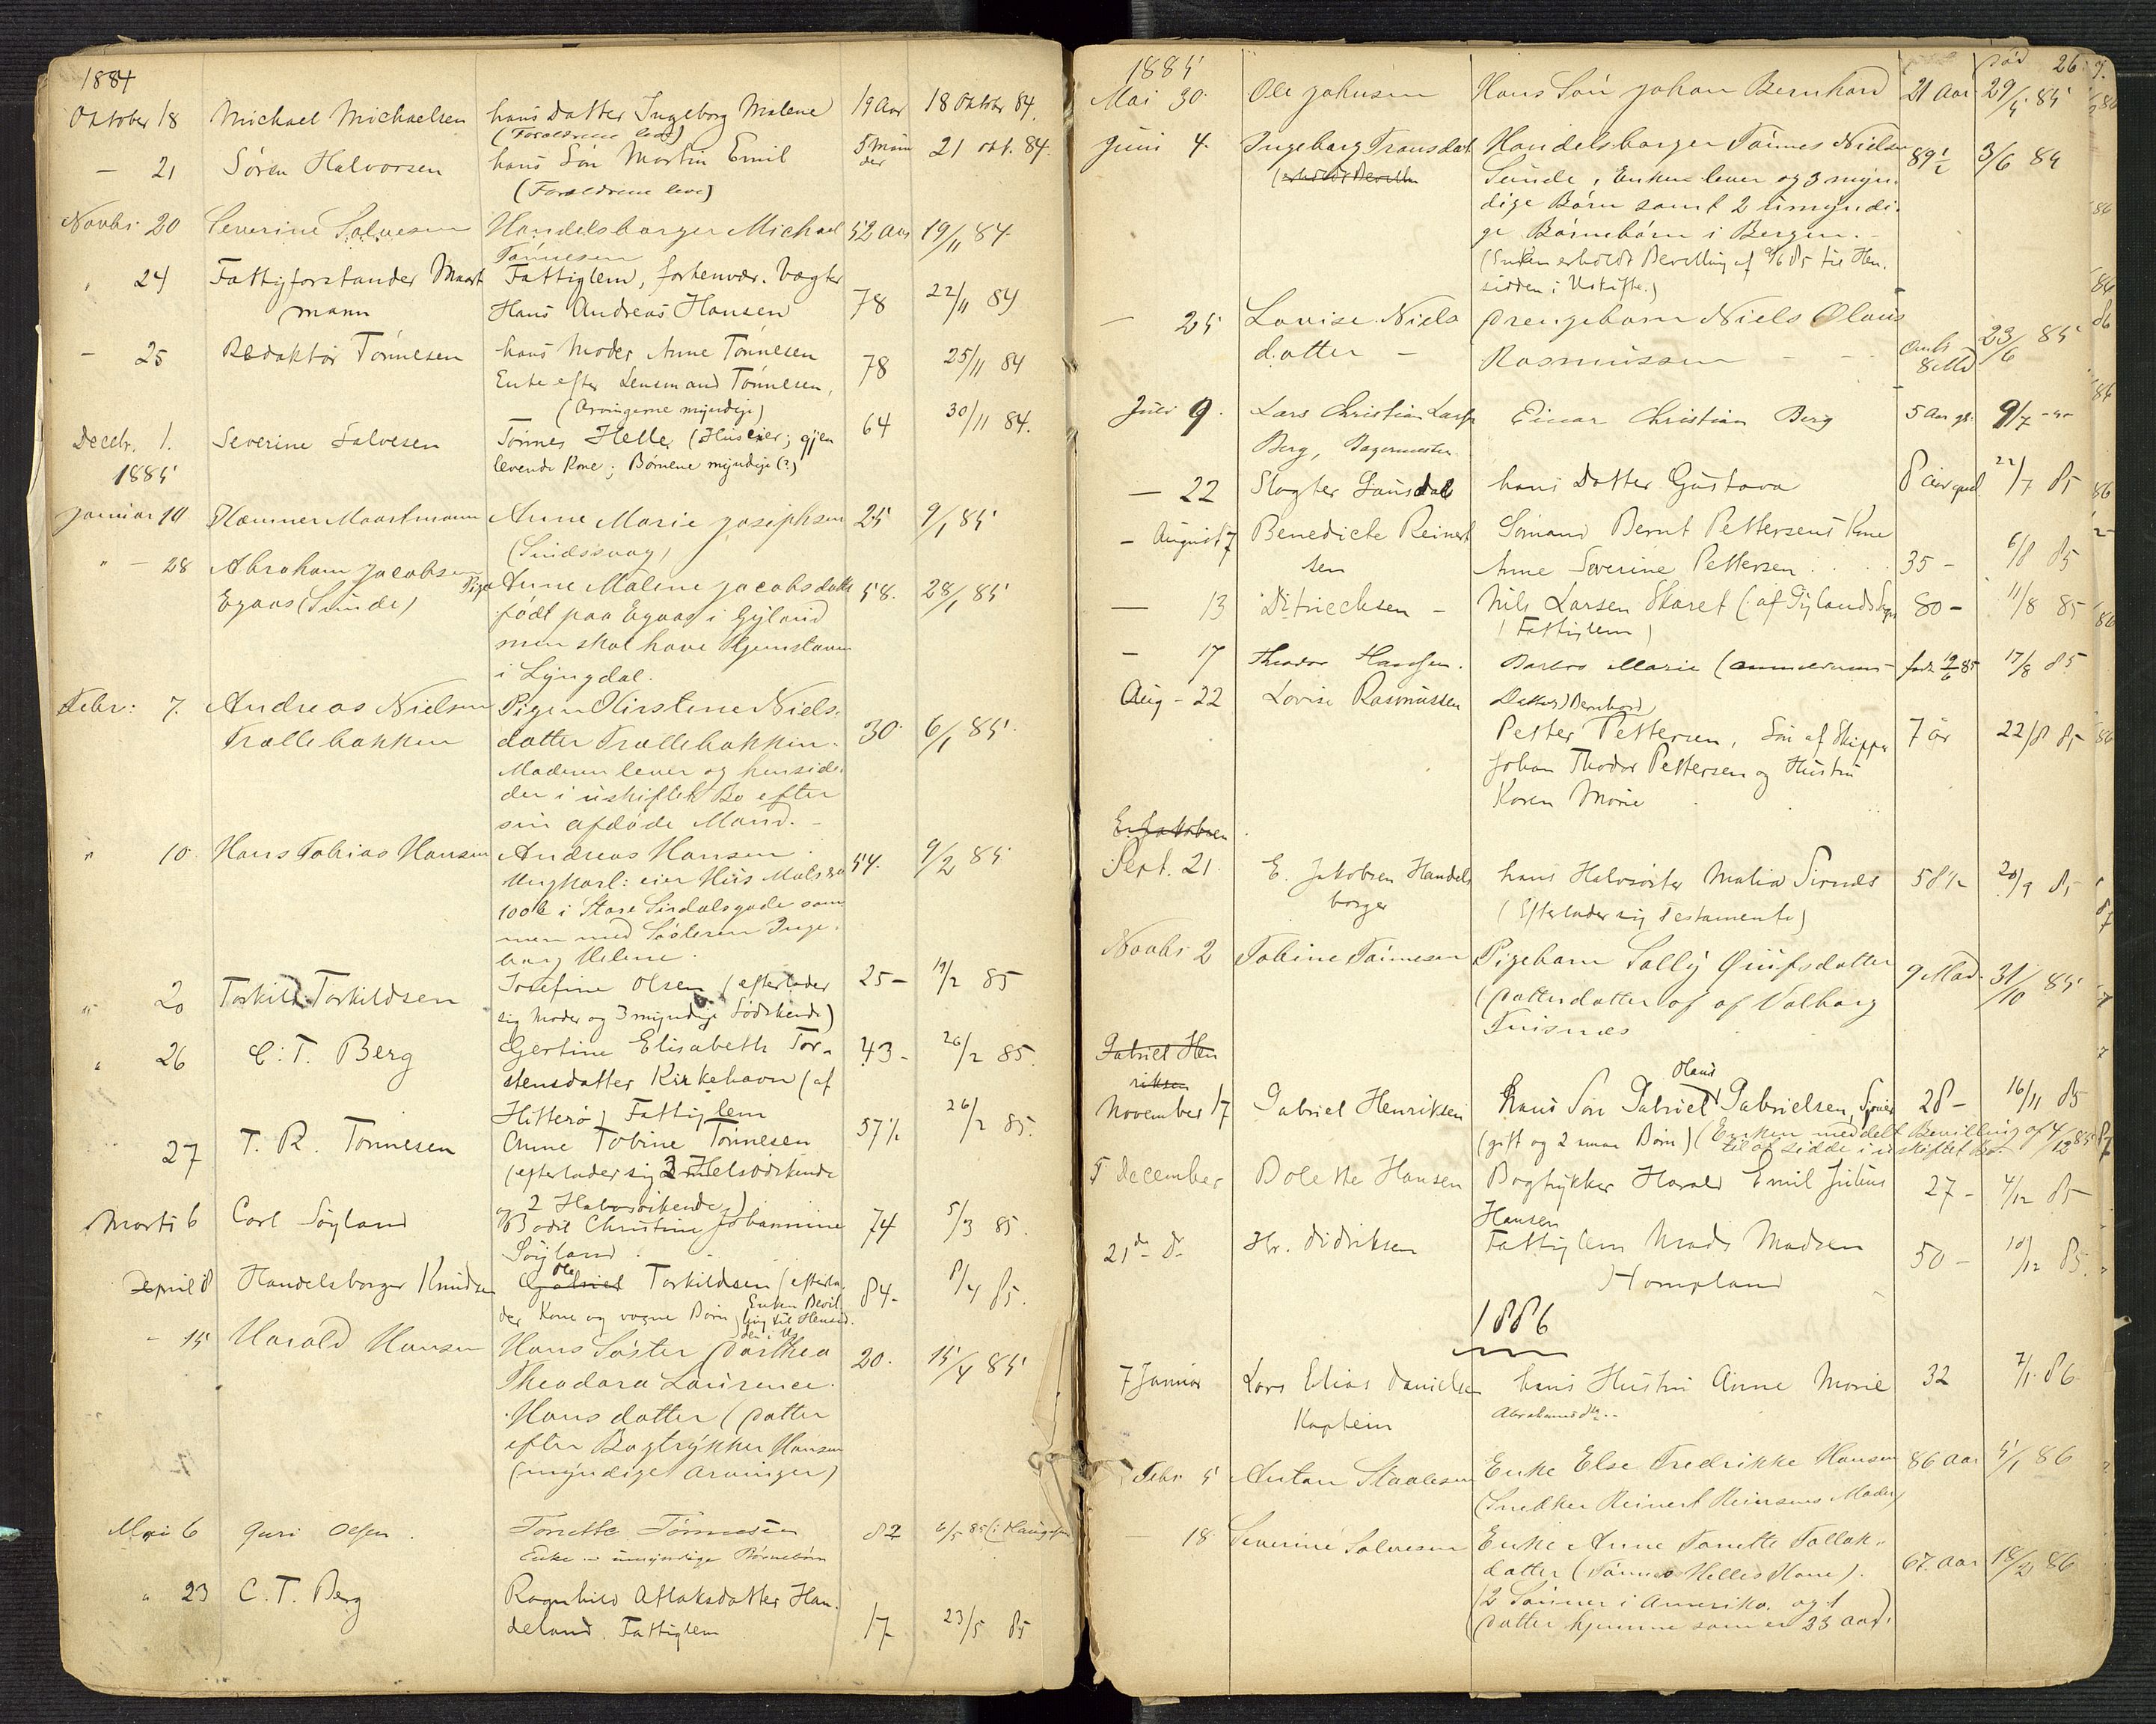 1884
Oktober 18 Michael Michaelsen hans Datter Ingeborg Malene 19 Aar 18 Oktober 84.
(Forældrene leve)
— 21 Søren Halvorsen hans Søn Martin Emil 5 Maaneder 21 okt. 84
(Forældrene leve)
Novbr 20 Severine Salvesen Handelsborger Michael 52 Aar 19/11 84
Tønnesen
" 24 Fattigforstander Maart Fattiglem, forhenvær. Vægter
mann Hans Andreas Hansen 78 22/11 84
— 25 Redaktør Tönnesen hans Moder Anne Tönnesen 78 25/11 84
Enke efter Lensmand Tönnesen,
(Arvingerne myndige)
Decbr. 1. Severine Salvesen Tønnes Helle (Huseier; gjen 64 30/11 84.
levende Kone; Børnene myndige (?)
1885
Januar 10 Anne Marie Josephsen 25 9/1 85
" — 28 Abraham Jacobsen Pige Anne Malene Jacobsdatter 58. 28/1 85
Egaas (Sunde) født paa Egaas i Gyland
men skal have Hjemstavn
i Lyngdal.
Febr: 7. Andreas Nielsen Pigen Kirstine Niels- 30 6/1 85
Trællebakken datter Trællebakken.
Moderen lever og hensid-
der i uskiftet Bo efter
sin afdøde Mand.
" 10 Hans Tobias Hansen Andreas Hansen 54. 9/2 85
Ungkarl: eier Hus Mats No
100 b i Store Sirdalsgade sam
men med Søsteren Inge-
borg Helene.
" 20 Torkild Torkildsen Josefine Olsen (efterlader 25 — 19/2 85
sig Moder og 3 myndige Södskende)
" 26 C. T. Berg Gertine Elisabeth Tor- 43 — 26/2 85.
stensdatter Kirkehavn (af
Hitterö) Fattiglem
27 T. R. Tönnesen Anne Tobine Tönnesen 57½ 26/2 85.
(efterlader sig 3 Helsödskende
og 2 Halvsödskende)
Marts 6 Carl Söyland Bodil Christine Johannine 74 5/3 85.
Söyland
April 8 Handelsborger Knudsen Ole Torkildsen (efterla- 84 — 8/4 85.
der Kone og voxne Börn) Enken Bevil
ling til Hensid
den i Us
" 15 Harald Hansen Hans Søster Dorthea 20. 15/4 85
Theodora Laurence
Hansdatter (Datter
efter Bogtrykker Hansen
(myndige Arvinger)
Mai 6 Guri Olsen. Tonette Tönnesen 82 6/5 85
Enke umyndige Børnebörn
" 23 C. T. Berg Ragnhild Aslaksdatter Hau- 17 23/5 85
deland. Fattiglem
1885 død 26.
Mai 30. Ole Johnsen Hans Søn Johan Bernhard 21 Aar 29/5 85
Juni 4. Ingeborg Transdat Handelsborger Tønnes Nielsen 89½ 3/6 84
Sunde, Enken lever og 3 myn-
dige Børn samt 2 umyndi-
ge Børnebørn i Bergen.
(Enken erholdt Bevilling af 9/6 85 til Hen-
sidden i Uskifte.)
— 25 Lovise Niels Drengebarn Niels Olaus
datter — Rasmussen Omtr 8 Md 23/6 85
Juli 9. Lars Christian Larsen Einar Christian Berg 5 Aar gl. 9/7
Berg, Bagermester
— 22 Slagter Lausdal hans Datter Gustava 8 aar gml 22/7 85
— August 7 Benedicte Reinert Sömand Bernt Pettersens Kone
sen Anne Severine Pettersen 35 — 6/8 85
— 13 Ditriechsen — Nils Larsen Skaret (af Gylands Sogn 80 — 11/8 85
(Fattiglem)
— 17 Theodor Barbro Marie født 19/6 85 17/8 85.
Aug — 22 Lovise Rasmussen Bernhard
Petter Pettersen, Sön af Skipper 7 år 22/8 85
Johan Theodor Pettersen og Hustru
Karen Marie
E. Jakobsen
Sept. 21. E. Jakobsen Handels hans Halvsöster Malia Sirnes 58½ 20/9 85
borger (Efterlader sig Testamente)
Novbr 2 Tobine Tønnesen Pigebarn Sally 9 Mdr. 31/10 85
(Datterdatter af af Valborg
Gabriel Hen
riksen
November 17 Gabriel Henriksen hans Sön Gabriel Olaus Gabrielsen, 28 — 16/11 85
(gift og 2 smaa Börn) (Enken meddelt Bevilling af 4/12 85
til at sidde i uskiftet Bo.
5 December Bolette Hansen Bogtrykker Harald Emil Julius 27 — 4/12 85
Hansen
21 de d. Hr. Didriksen Fattiglem Mads Madsen 50 — 10/12 85.
Hompland
1886
7 Januar Lars Elias Danielsen hans Hustru Anne Marie 32 7/1 86
Kaptein
Febr. 5 Anton Staalesen Enke Else Fredrikke Hansen 86 Aar 5/1 86
(Snedker Reinert Moder)
— 18. Severine Salvesen Enke Anne Tonette Tollak-
datter (Tønnes Helles Kone). 67. Aar 18/2 86
(2 Sønner i Amerika. og 1
Datter hjemme som er 33 Aar)